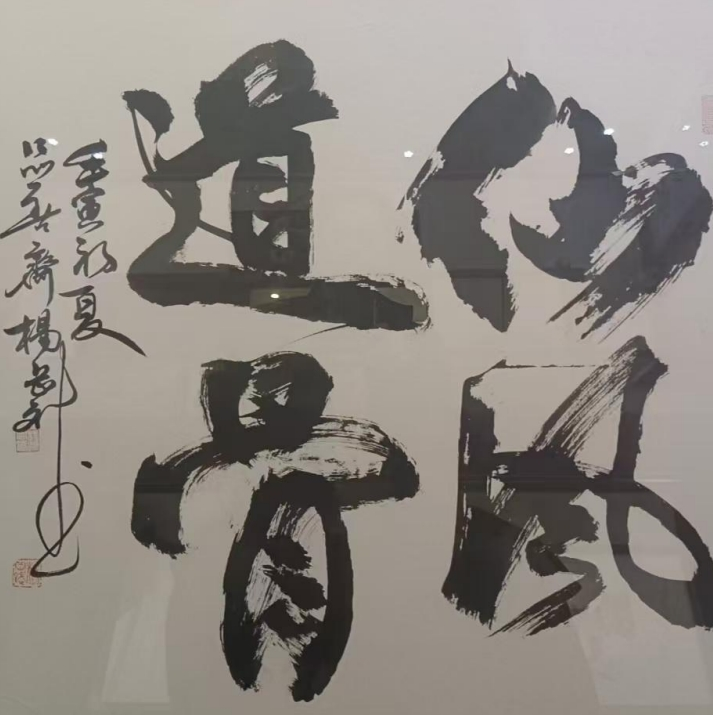 仙风
道骨
壬寅初夏
品吾斋杨
书